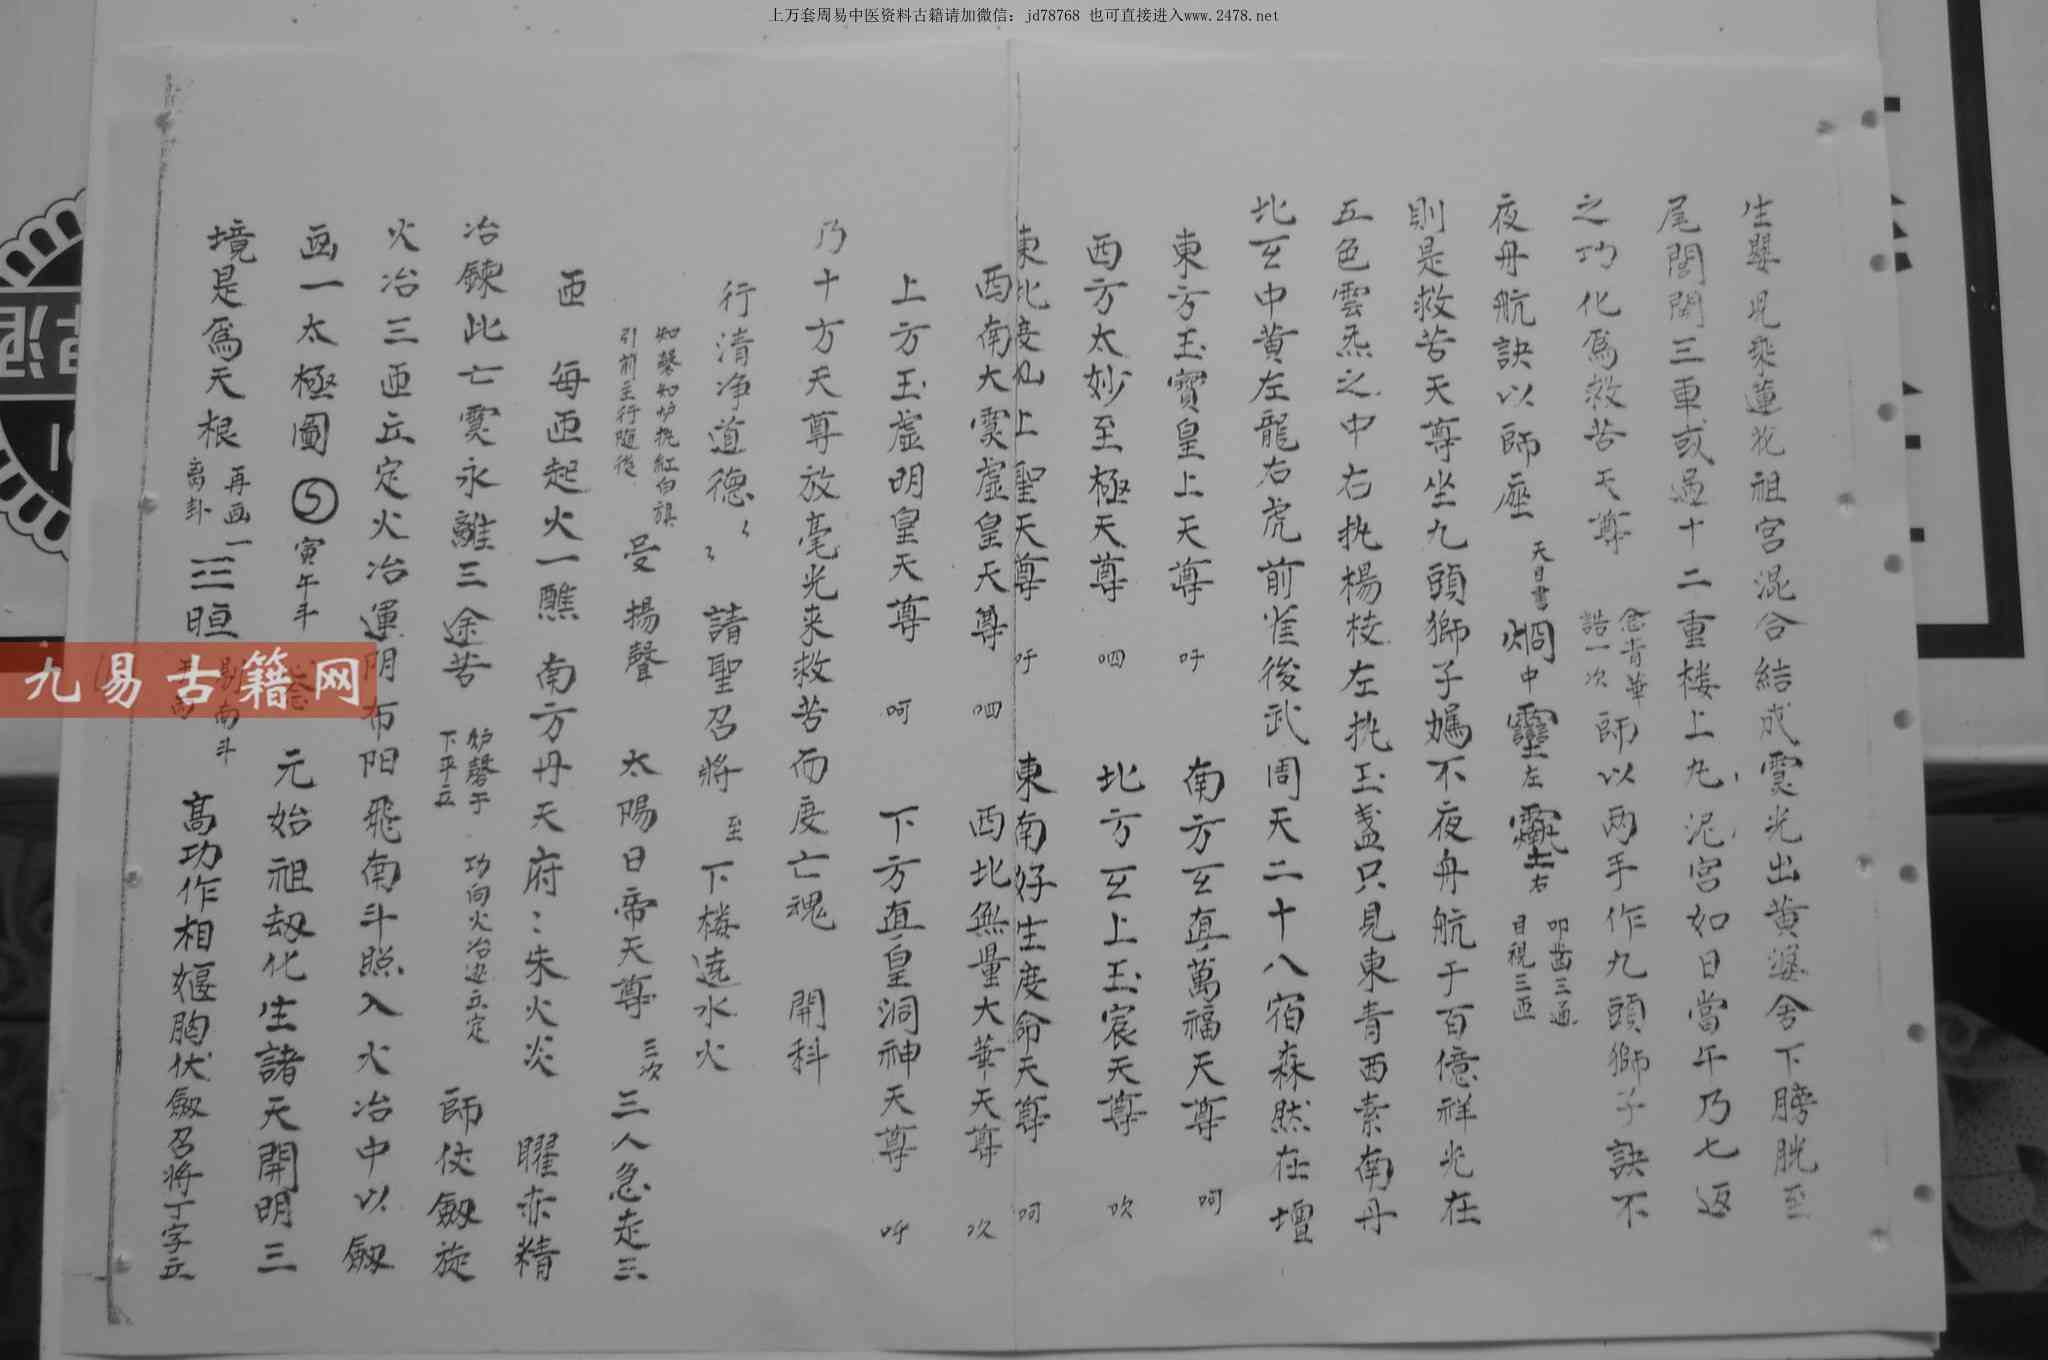 上万套周易中医资料古籍请加微信：jd78768 也可直接进入www.2478.net
生嬰児乘蓮花祖宫混合結成霊光出黄婆舍下膀胱至
尾閭関三車或過十二重楼上九泥宫如日當午乃七返
之功化爲救苦天尊 念青華誥一次 師以两手作九頭獅子訣不
夜舟航訣以師座 天目書 炯中 靈左 右 叩齒三通 目視三匝
則是救苦天尊坐九頭獅子 不夜舟航于百億祥光在
五色雲炁之中右执楊枝左执玉盏只見東青西素南丹
北玄中黄左龍右虎前雀後武周天二十八宿森然在壇
東方玉寳皇上天尊 吁 南方玄真萬福天尊 呵
西方太妙至極天尊 呬 北方玄上玉宸天尊 吹
東北度仙上聖天尊 吁 東南好生度命天尊 呵
西南大霊虚皇天尊 呬 西北無量大華天尊 吹
上方玉虚明皇天尊 呵 下方真皇洞神天尊 呼
乃十方天尊放毫光来救苦而度亡魂 開科
行清净道德〻〻 請聖召将 至 下楼遶水火
如磬如炉执紅白旗
引前主行随後 受 揚聲 太陽日帝天尊 三次 三人急走三
匝 每匝起火一醮 南方丹天府〻朱火炎 曜赤精
冶錬此亡霊永離三途苦 炉磬于下平立 功向火冶边立定 師仗劔旋
火冶三匝立定火冶運阴布阳飛南斗照入火冶中以劔
画一太極圖 寅午斗 元始祖劫化生諸天開明三
境是爲天根 再画一離卦 三 南斗 高功作相 胸伏劔召将丁字立
九易古籍网